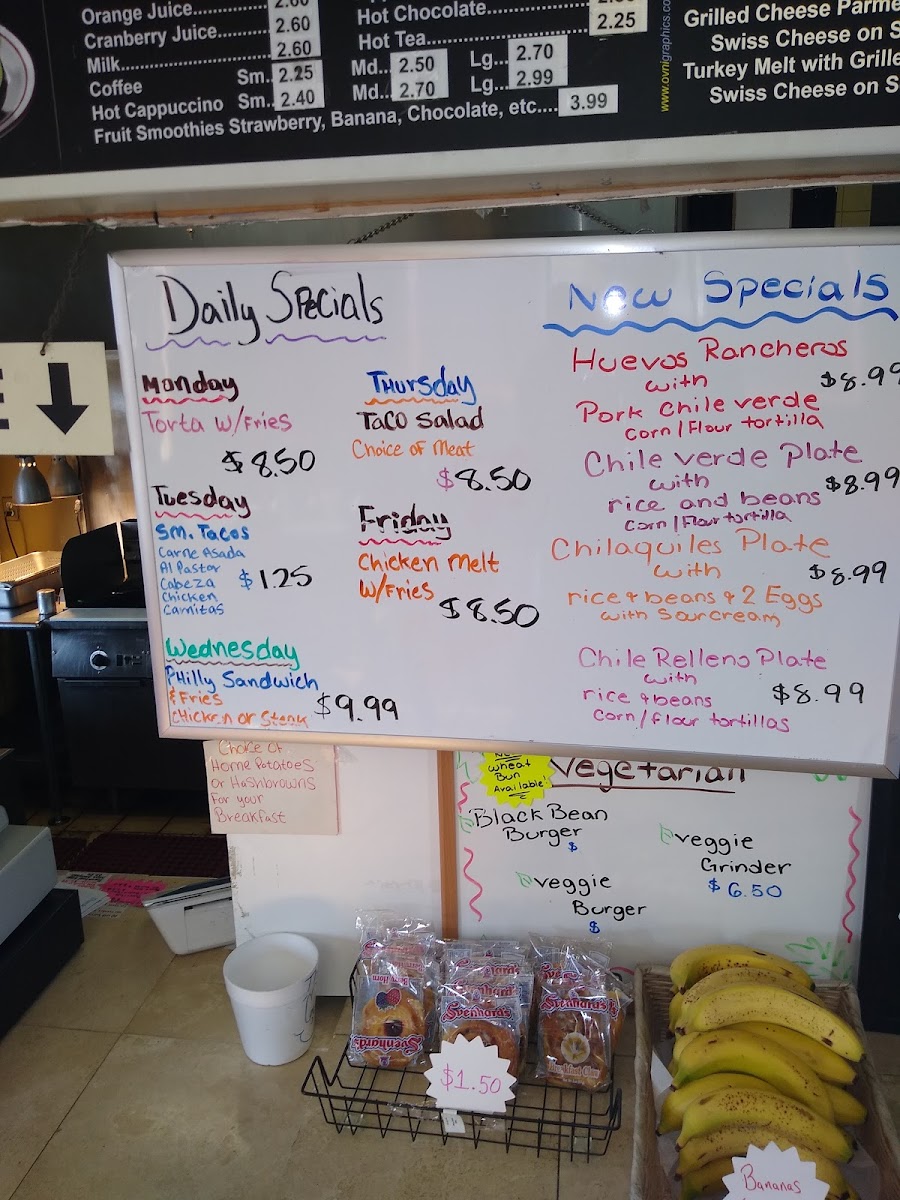 Orange Juice 2.60
Cranberry Juice 2.60
Milk 2.60
Coffee Sm. 2.25 Md. 2.50 Lg. 2.70
Hot Cappuccino Sm. 2.40 Md. 2.70 Lg. 2.99
Fruit Smoothies Strawberry, Banana, Chocolate, etc.... 3.99
Hot Chocolate
Hot Tea 2.25
www.ovnigraphics.co
Grilled Cheese Parme
Swiss Cheese on S
Turkey Melt with Grille
Swiss Cheese on S
E
Daily Specials
Monday
Torta w/Fries
$8.50
Tuesday
Sm. Tacos
Carne Asada
Al Pastor
Cabeza
Chicken
Carnitas
$1.25
Wednesday
Philly Sandwich
& Fries
Chicken or Steak
$9.99
Thursday
Taco Salad
Choice of Meat
$8.50
Friday
Chicken Melt
w/Fries
$8.50
New Specials
Huevos Rancheros
with
$8.99
Pork Chile verde
Corn/Flour tortilla
Chile verde Plate
with
$8.99
rice and beans
Corn/Flour tortilla
Chilaquiles Plate
with
$8.99
rice & beans & 2 Eggs
with Sour cream
Chile Relleno Plate
with
rice & beans
$8.99
corn/flour tortillas
Choice of
Home Potatoes
or Hashbrowns
For your
Breakfast
Wheat
Bun
Available!
Vegetarian
Black Bean
Burger
$
veggie
Grinder
$6.50
veggie
Burger
$
Svenhard's
Svenhard's
Svenhard's
Breakfast Claw
$1.50
Bananas